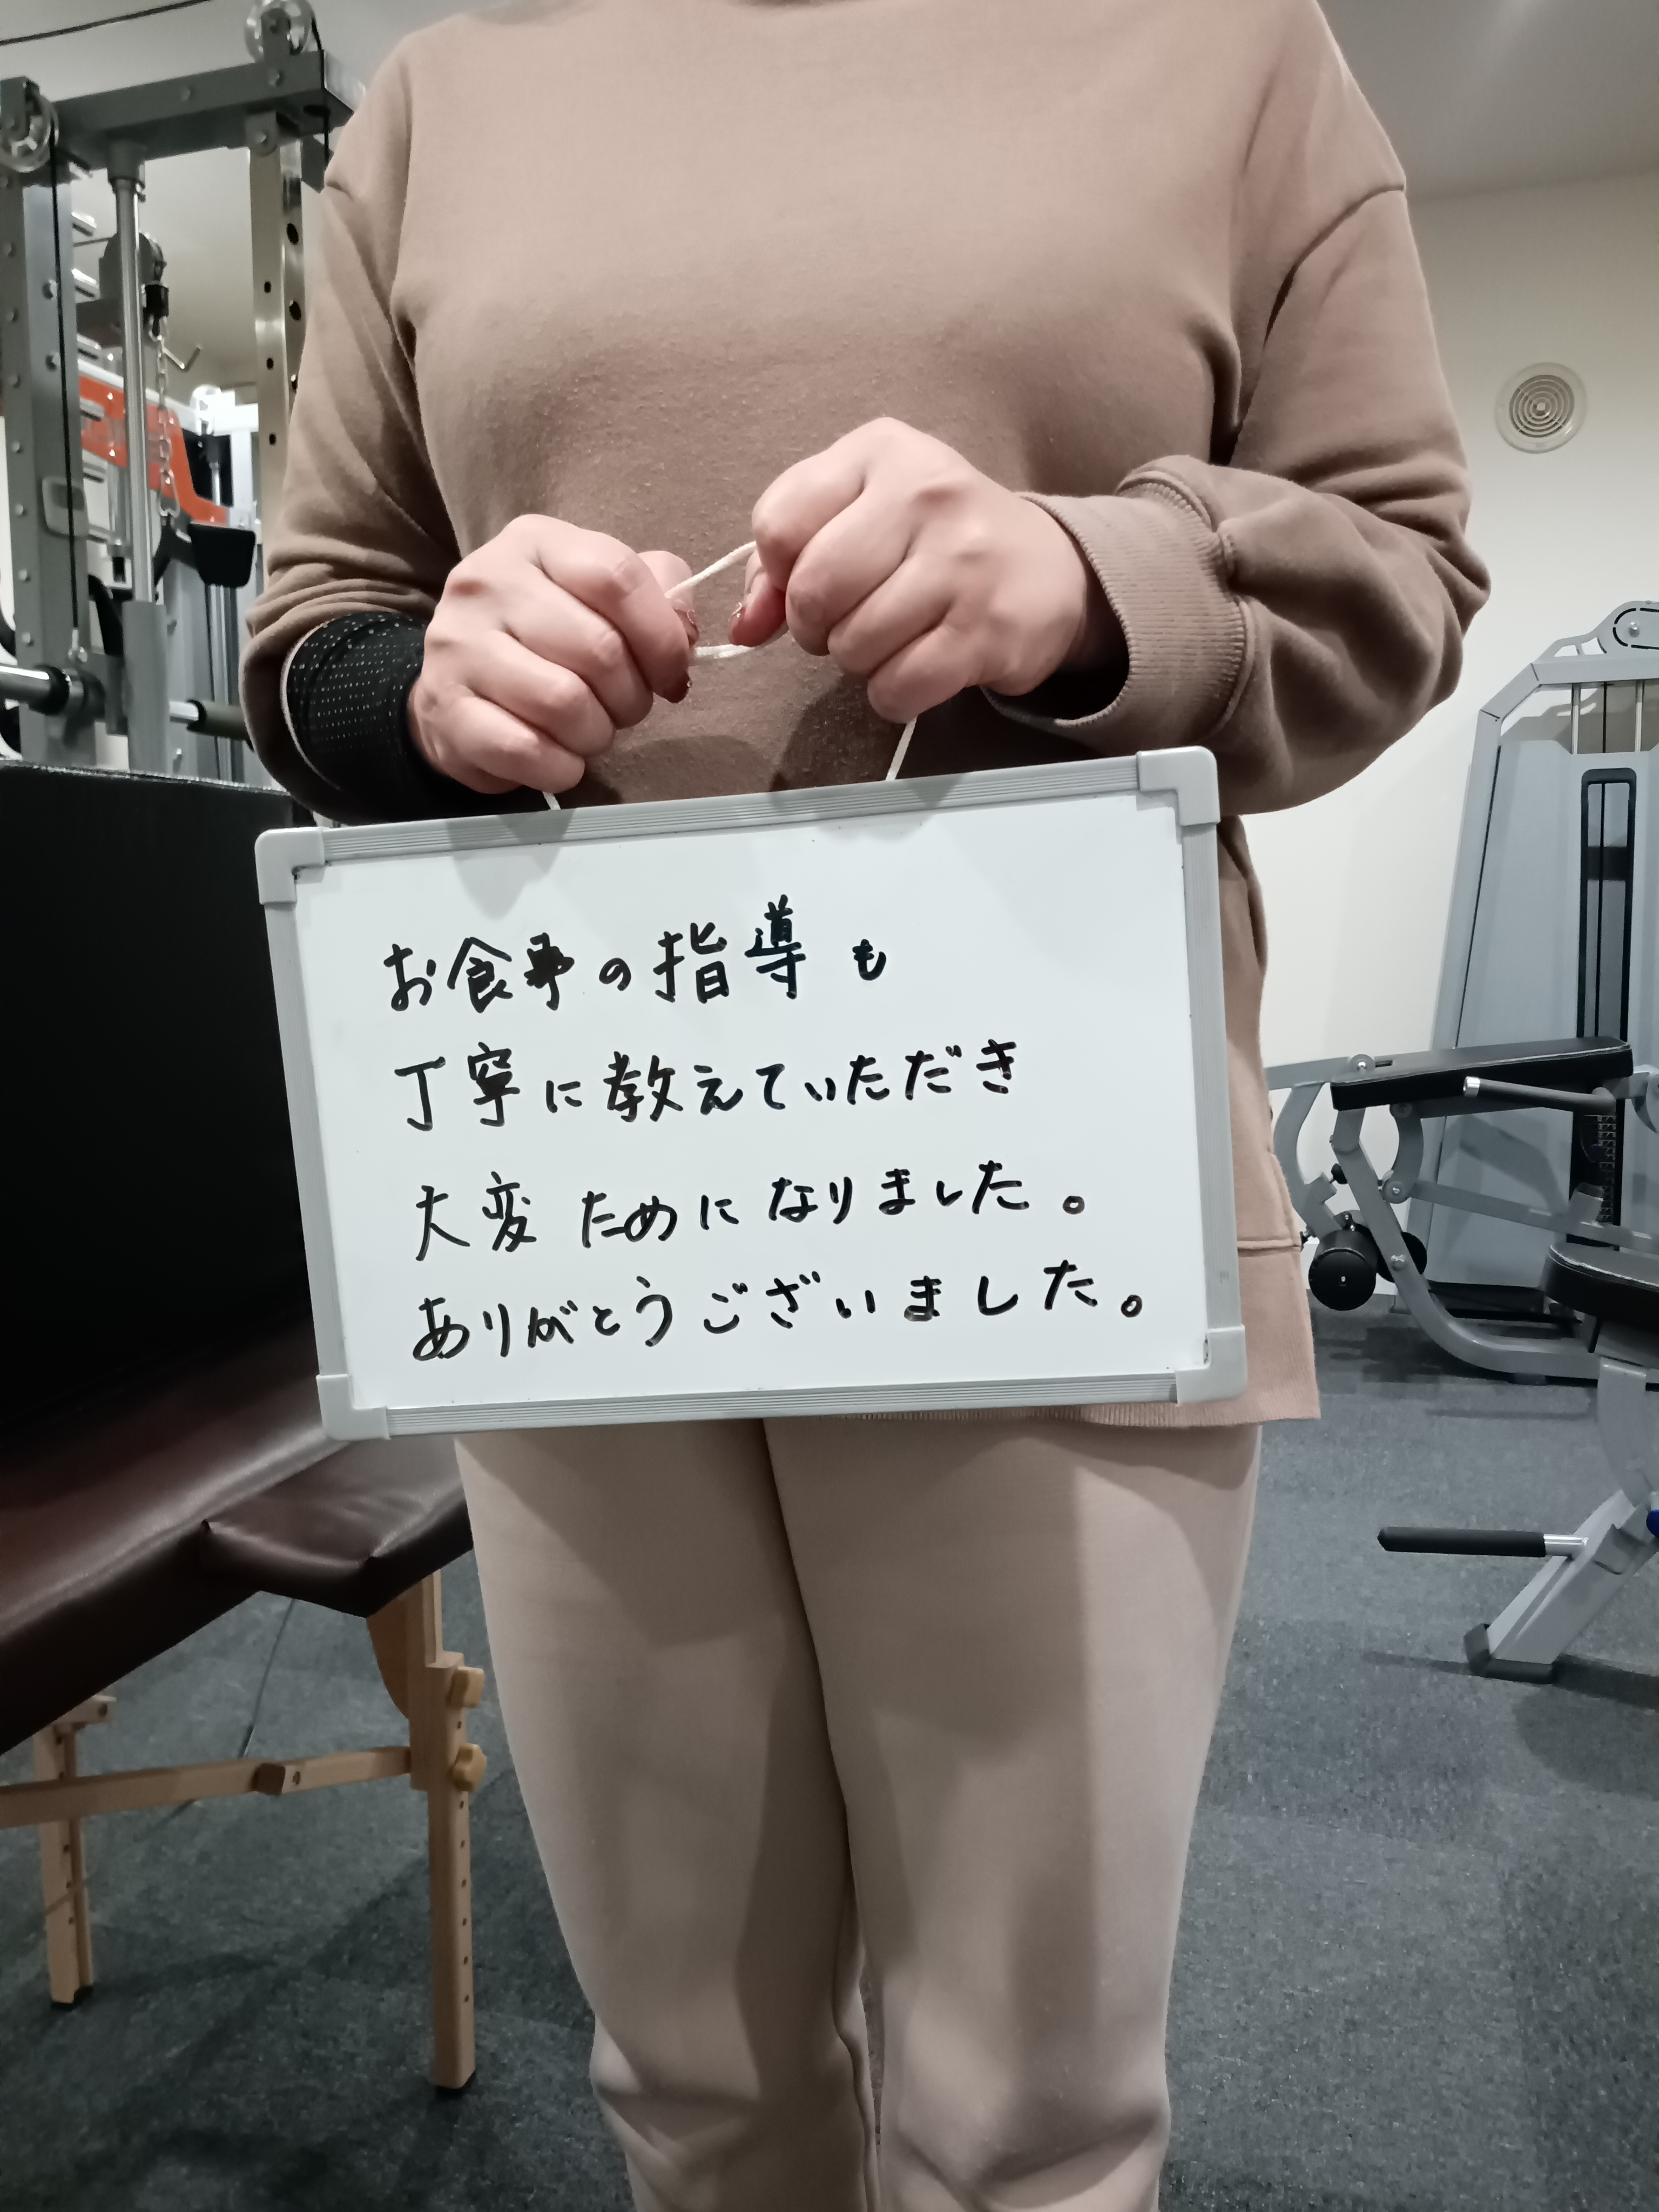 お食事の指導も
丁寧に教えていただき
大変ためになりました。
ありがとうございました。